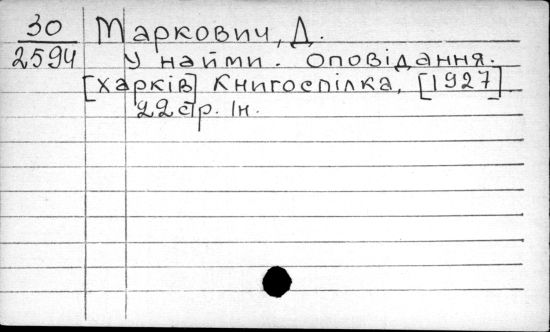 30 Маркович, Д.
2594 У найми. Оповідання.
[Харків] Книгоспілка, [1927].
22 стр. Ін.